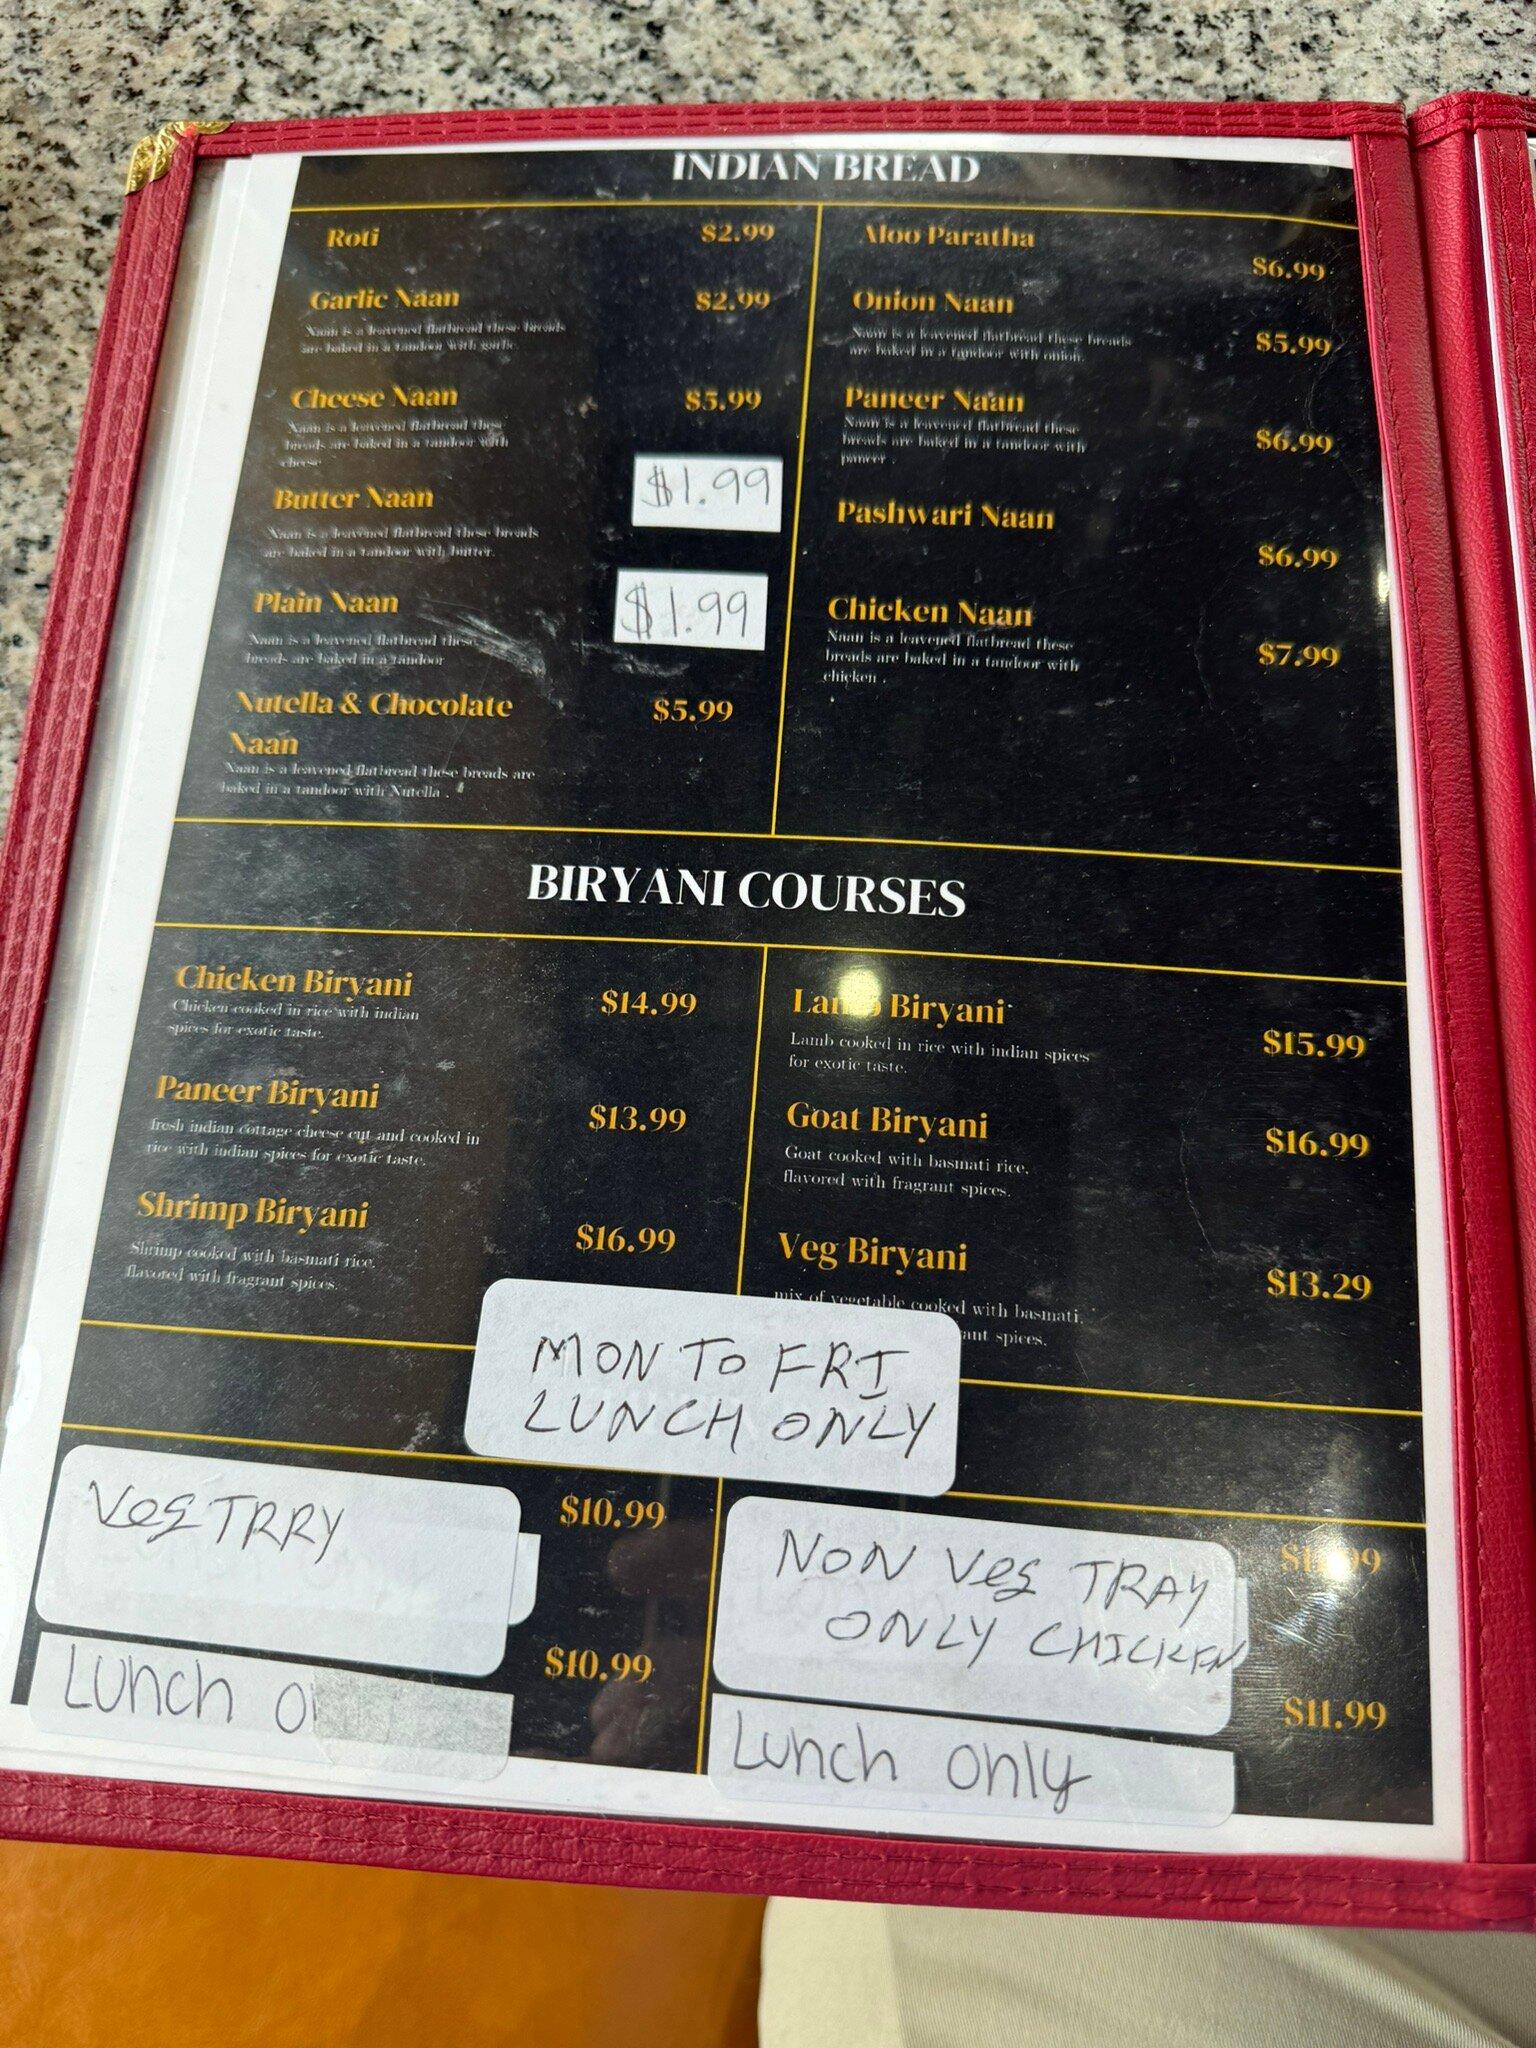 INDIAN BREAD
Roti $2.99
Garlic Naan $2.99
Naan is a leavened flatbread these breads
are baked in a tandoor with garlic.
Cheese Naan $5.99
Naan is a leavened flatbread these
breads are baked in a tandoor with
cheese
Butter Naan $1.99
Naan is a leavened flatbread these breads
are baked in a tandoor with butter.
Plain Naan $1.99
Naan is a leavened flatbread these
breads are baked in a tandoor
Nutella & Chocolate $5.99
Naan
Naan is a leavened flatbread these breads are
baked in a tandoor with Nutella .
Aloo Paratha
$6.99
Onion Naan
Naan is a leavened flatbread these breads
are baked in a tandoor with onion.
$5.99
Paneer Naan
Naan is a leavened flatbread these
breads are baked in a tandoor with
paneer .
$6.99
Pashwari Naan
$6.99
Chicken Naan
Naan is a leavened flatbread these
breads are baked in a tandoor with
chicken .
$7.99
BIRYANI COURSES
Chicken Biryani $14.99
Chicken cooked in rice with indian
spices for exotic taste.
Paneer Biryani $13.99
fresh indian cottage cheese cut and cooked in
rice with indian spices for exotic taste.
Shrimp Biryani $16.99
Shrimp cooked with basmati rice,
flavored with fragrant spices.
Lamb Biryani
Lamb cooked in rice with indian spices
for exotic taste.
$15.99
Goat Biryani $16.99
Goat cooked with basmati rice,
flavored with fragrant spices.
Veg Biryani $13.29
mix of vegetable cooked with basmati,
spices.
MON TO FRI
LUNCH ONLY
Veg TRRY $10.99
$10.99
Lunch
NON Veg TRAY
ONLY CHICKEN
$11.99
Lunch only